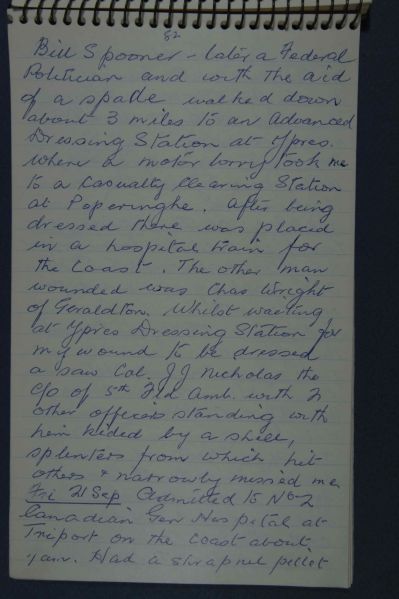 82
Bill Spooner - later a Federal
Politician and with the aid
of a spade walked down
about 3 miles to an Advanced
Dressing Station at Ypres.
where a motor lorry took me
to a Casualty Clearing Station
at Poperinghe. After being
dressed there was placed
in a hospital train for
the Coast. The other man
wounded was Chas Wright
of Geraldton. Whilst waiting
at Ypres Dressing Station for
my wound to be dressed
a saw Col. JJ Nicholas the
C/O of 5th Fld Amb. with
other officers standing with
him killed by a shell,
splenters from which hit
others & narrowly missed me
Fri 21 Sep Admitted to No 2
Canadian Gen Hospital at
Triport on the Coast about
7am. Had a shrapnel pellet